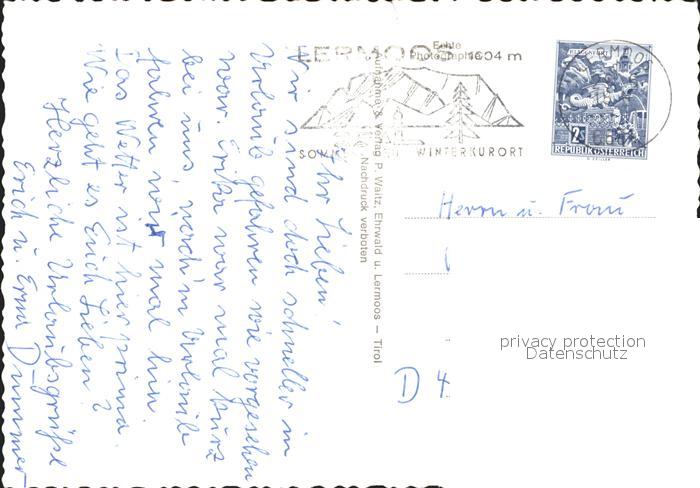 Echte
Photographie
LERMOOS 1004 m
SOMMER WINTERKURORT
2 S
REPUBLIK ÖSTERREICH
Aufnahme & Verlag P. Waitz, Ehrwald u. Lermoos — Tirol
Nachdruck verboten
Ihr Lieben!
Wir sind doch schneller in
Urlaub gefahren wie vorgesehen
war. Erika war mal kurz
bei uns, nach'm Urlaub
fahren wir mal hin
Das Wetter ist hier prima.
Wie geht es Euch Lieben?
Herzliche Urlaubsgrüße
Erich u. Erna Dummer
Herrn u. Frau
D 4
privacy protection
Datenschutz